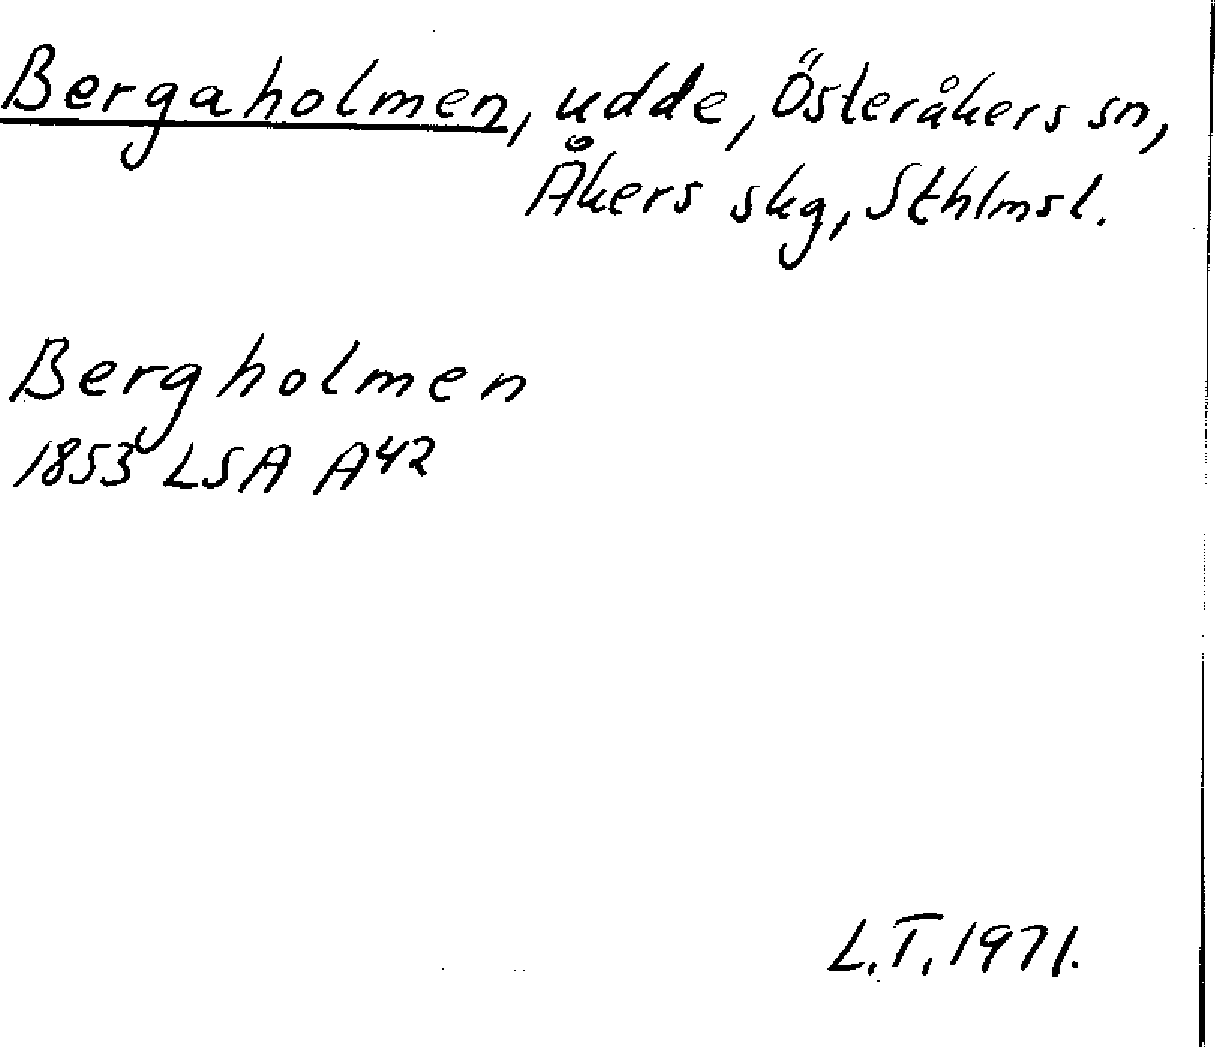 Bergaholmen, udde, Österåkers sn,
Åkers skg, Sthlmsl.
Bergholmen
1853 LSA A42
L.T. 1971.